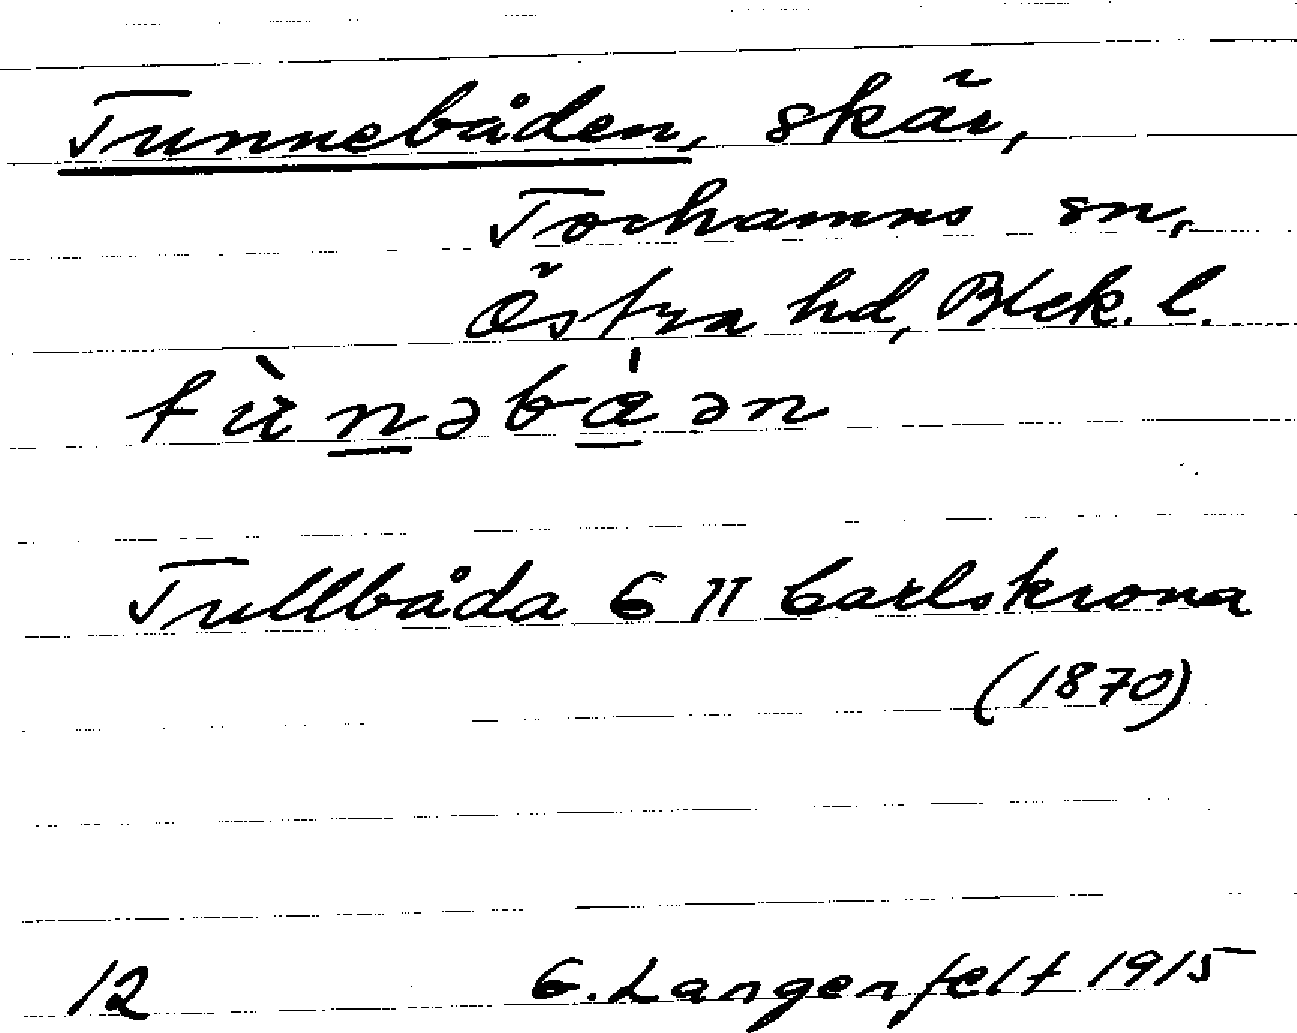 Tunnebåden, skär,
Torhamns sn,
Östra hd, Blek. l.
tùnəbáən
Tullbåda G II Carlskrona
(1870)
12 G. Langenfelt 1915